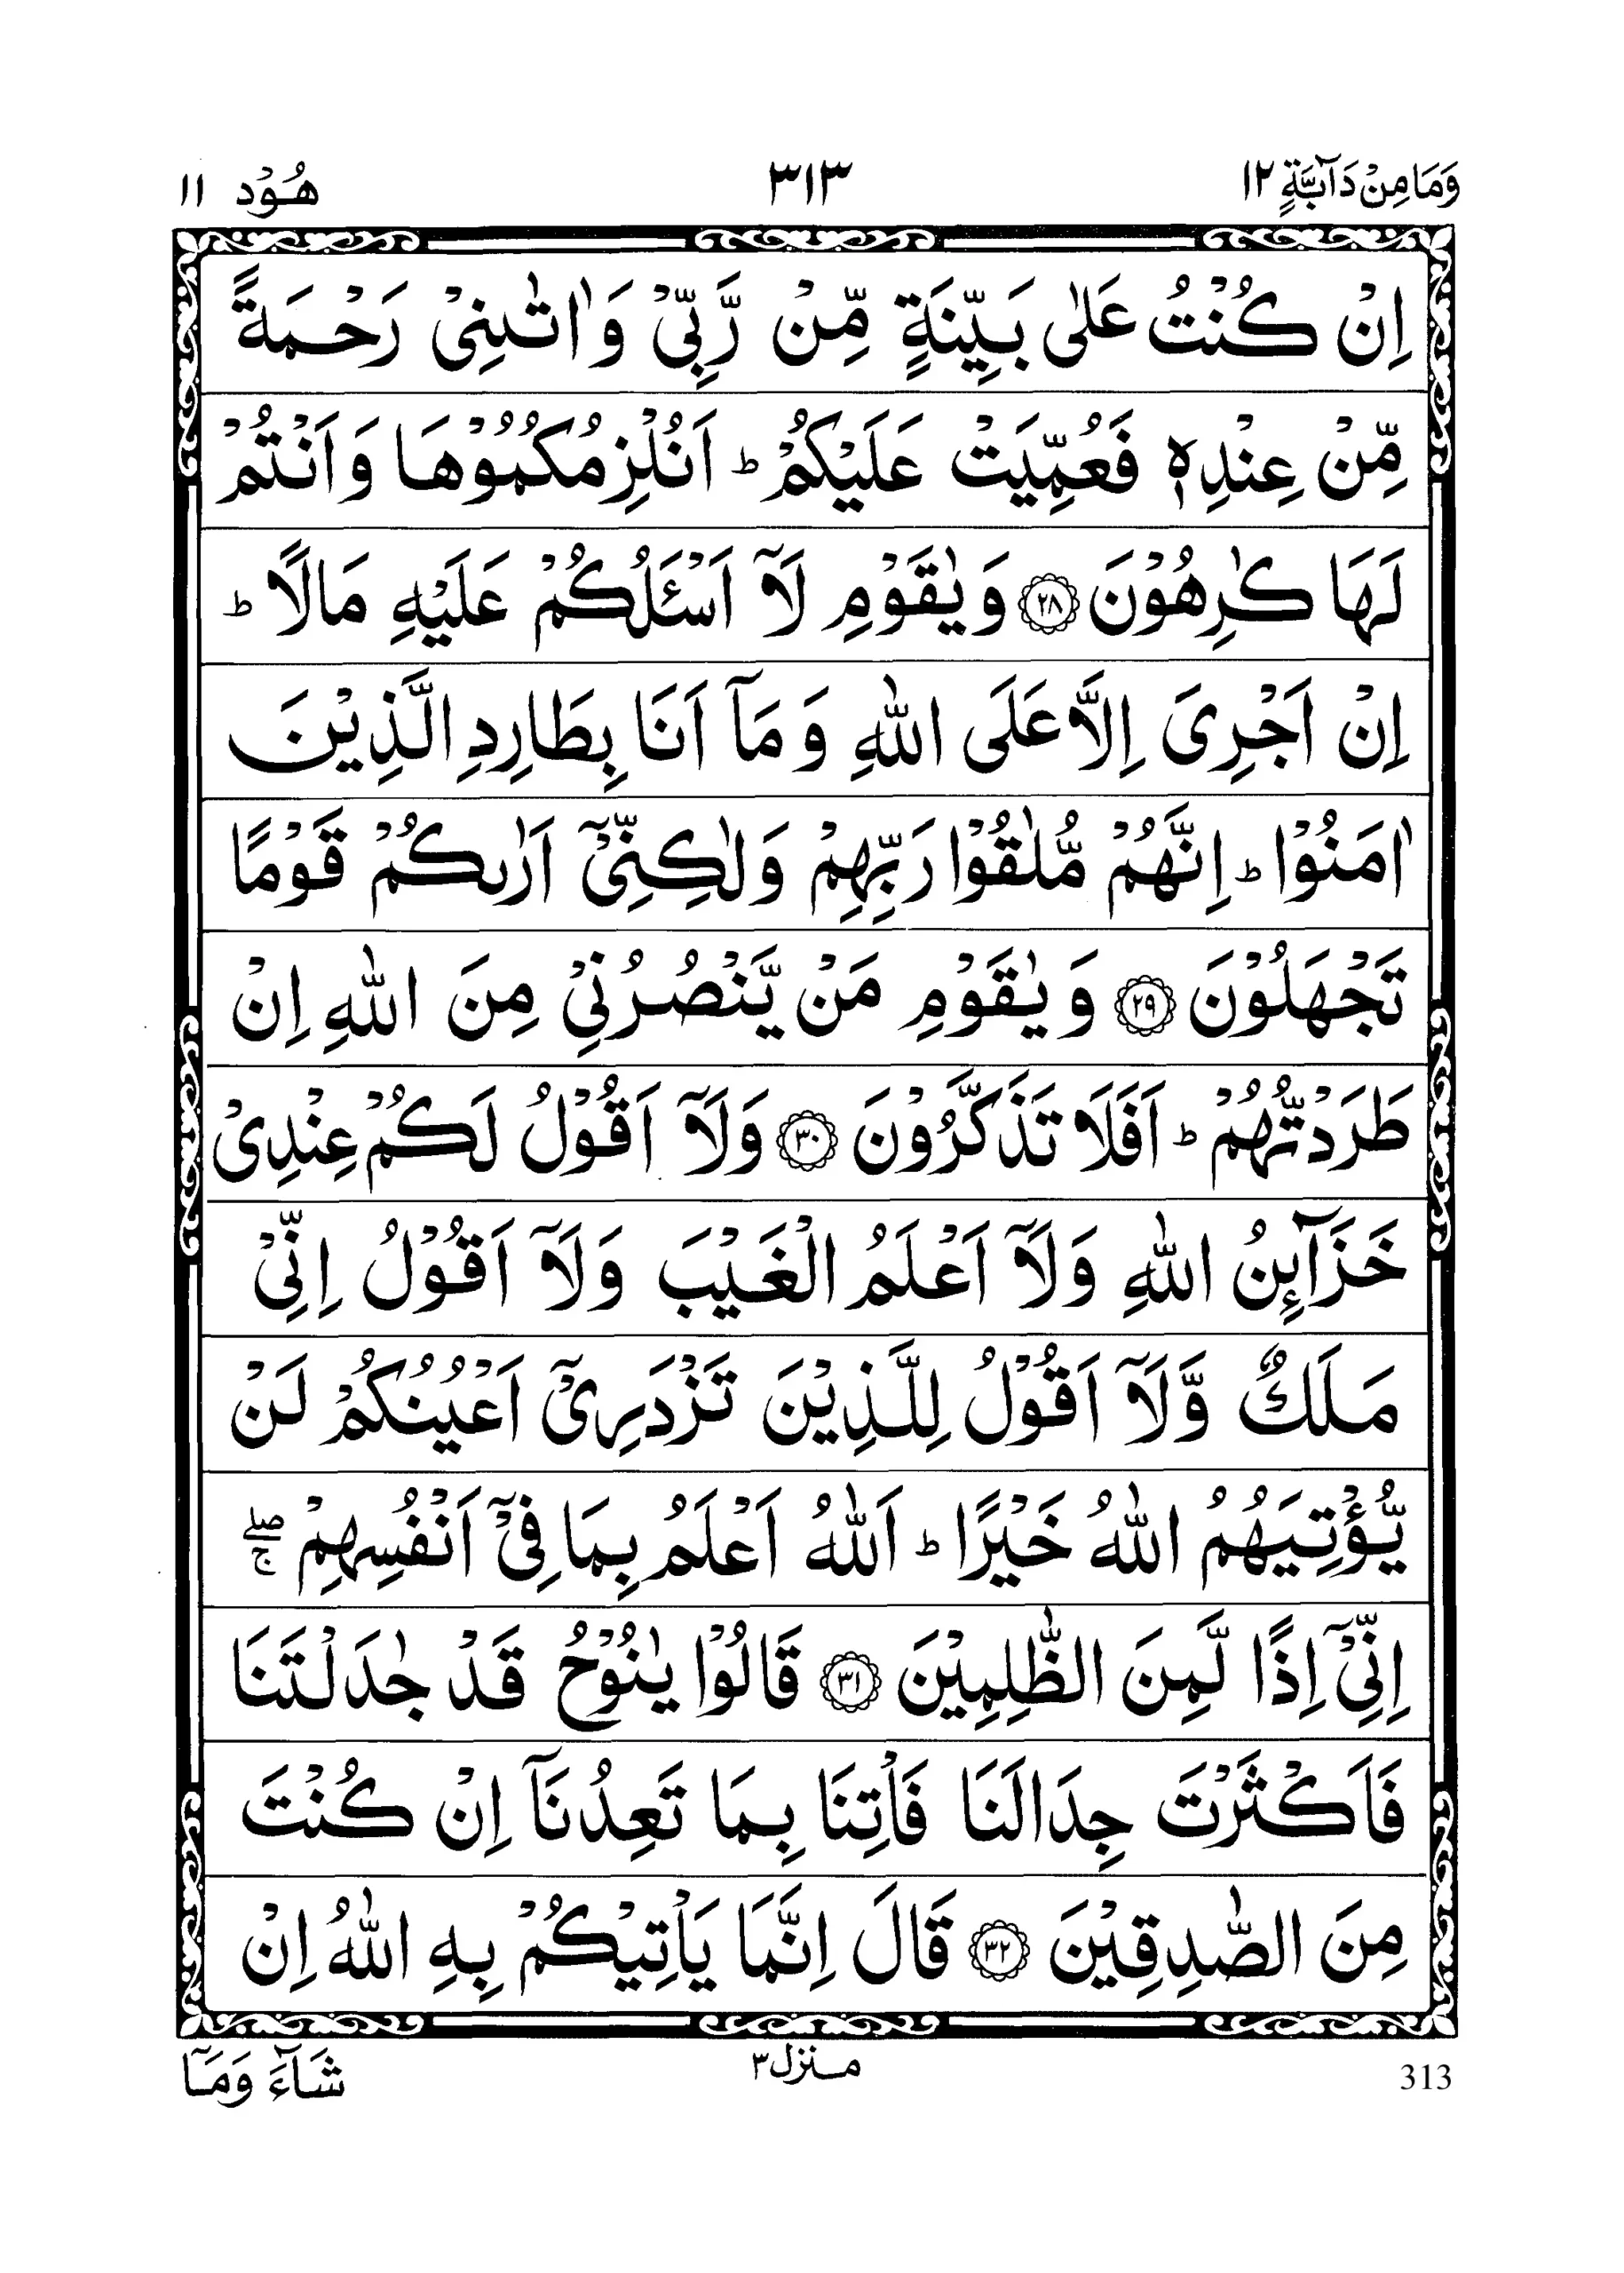 وَمَا مِنْ دَآبَّةٍ ١٢
٣١٣
هُوْد ١١
اِنْ كُنْتُ عَلٰى بَيِّنَةٍ مِّنْ رَّبِّىْ وَاٰتٰىنِىْ رَحْمَةً
مِّنْ عِنْدِهٖ فَعُمِّيَتْ عَلَيْكُمْ ؕ اَنُلْزِمُكُمُوْهَا وَاَنْتُمْ
لَهَا كٰرِهُوْنَ ۝٢٨ وَيٰقَوْمِ لَاۤ اَسْـَٔلُكُمْ عَلَيْهِ مَالًا ؕ
اِنْ اَجْرِىَ اِلَّا عَلَى اللّٰهِ وَمَاۤ اَنَا بِطَارِدِ الَّذِيْنَ
اٰمَنُوْا ؕ اِنَّهُمْ مُّلٰقُوْا رَبِّهِمْ وَلٰكِنِّىْۤ اَرٰىكُمْ قَوْمًا
تَجْهَلُوْنَ ۝٢٩ وَيٰقَوْمِ مَنْ يَّنْصُرُنِىْ مِنَ اللّٰهِ اِنْ
طَرَدْتُّهُمْ ؕ اَفَلَا تَذَكَّرُوْنَ ۝٣٠ وَلَاۤ اَقُوْلُ لَكُمْ عِنْدِىْ
خَزَآىِٕنُ اللّٰهِ وَلَاۤ اَعْلَمُ الْغَيْبَ وَلَاۤ اَقُوْلُ اِنِّىْ
مَلَكٌ وَّلَاۤ اَقُوْلُ لِلَّذِيْنَ تَزْدَرِىْۤ اَعْيُنُكُمْ لَنْ
يُّؤْتِيَهُمُ اللّٰهُ خَيْرًا ؕ اَللّٰهُ اَعْلَمُ بِمَا فِىْۤ اَنْفُسِهِمْ ۖۚ
اِنِّىْۤ اِذًا لَّمِنَ الظّٰلِمِيْنَ ۝٣١ قَالُوْا يٰنُوْحُ قَدْ جٰدَلْتَنَا
فَاَكْثَرْتَ جِدَالَنَا فَاْتِنَا بِمَا تَعِدُنَاۤ اِنْ كُنْتَ
مِنَ الصّٰدِقِيْنَ ۝٣٢ قَالَ اِنَّمَا يَاْتِيْكُمْ بِهِ اللّٰهُ اِنْ
شَآءَ وَمَاۤ
منزل ٣
313